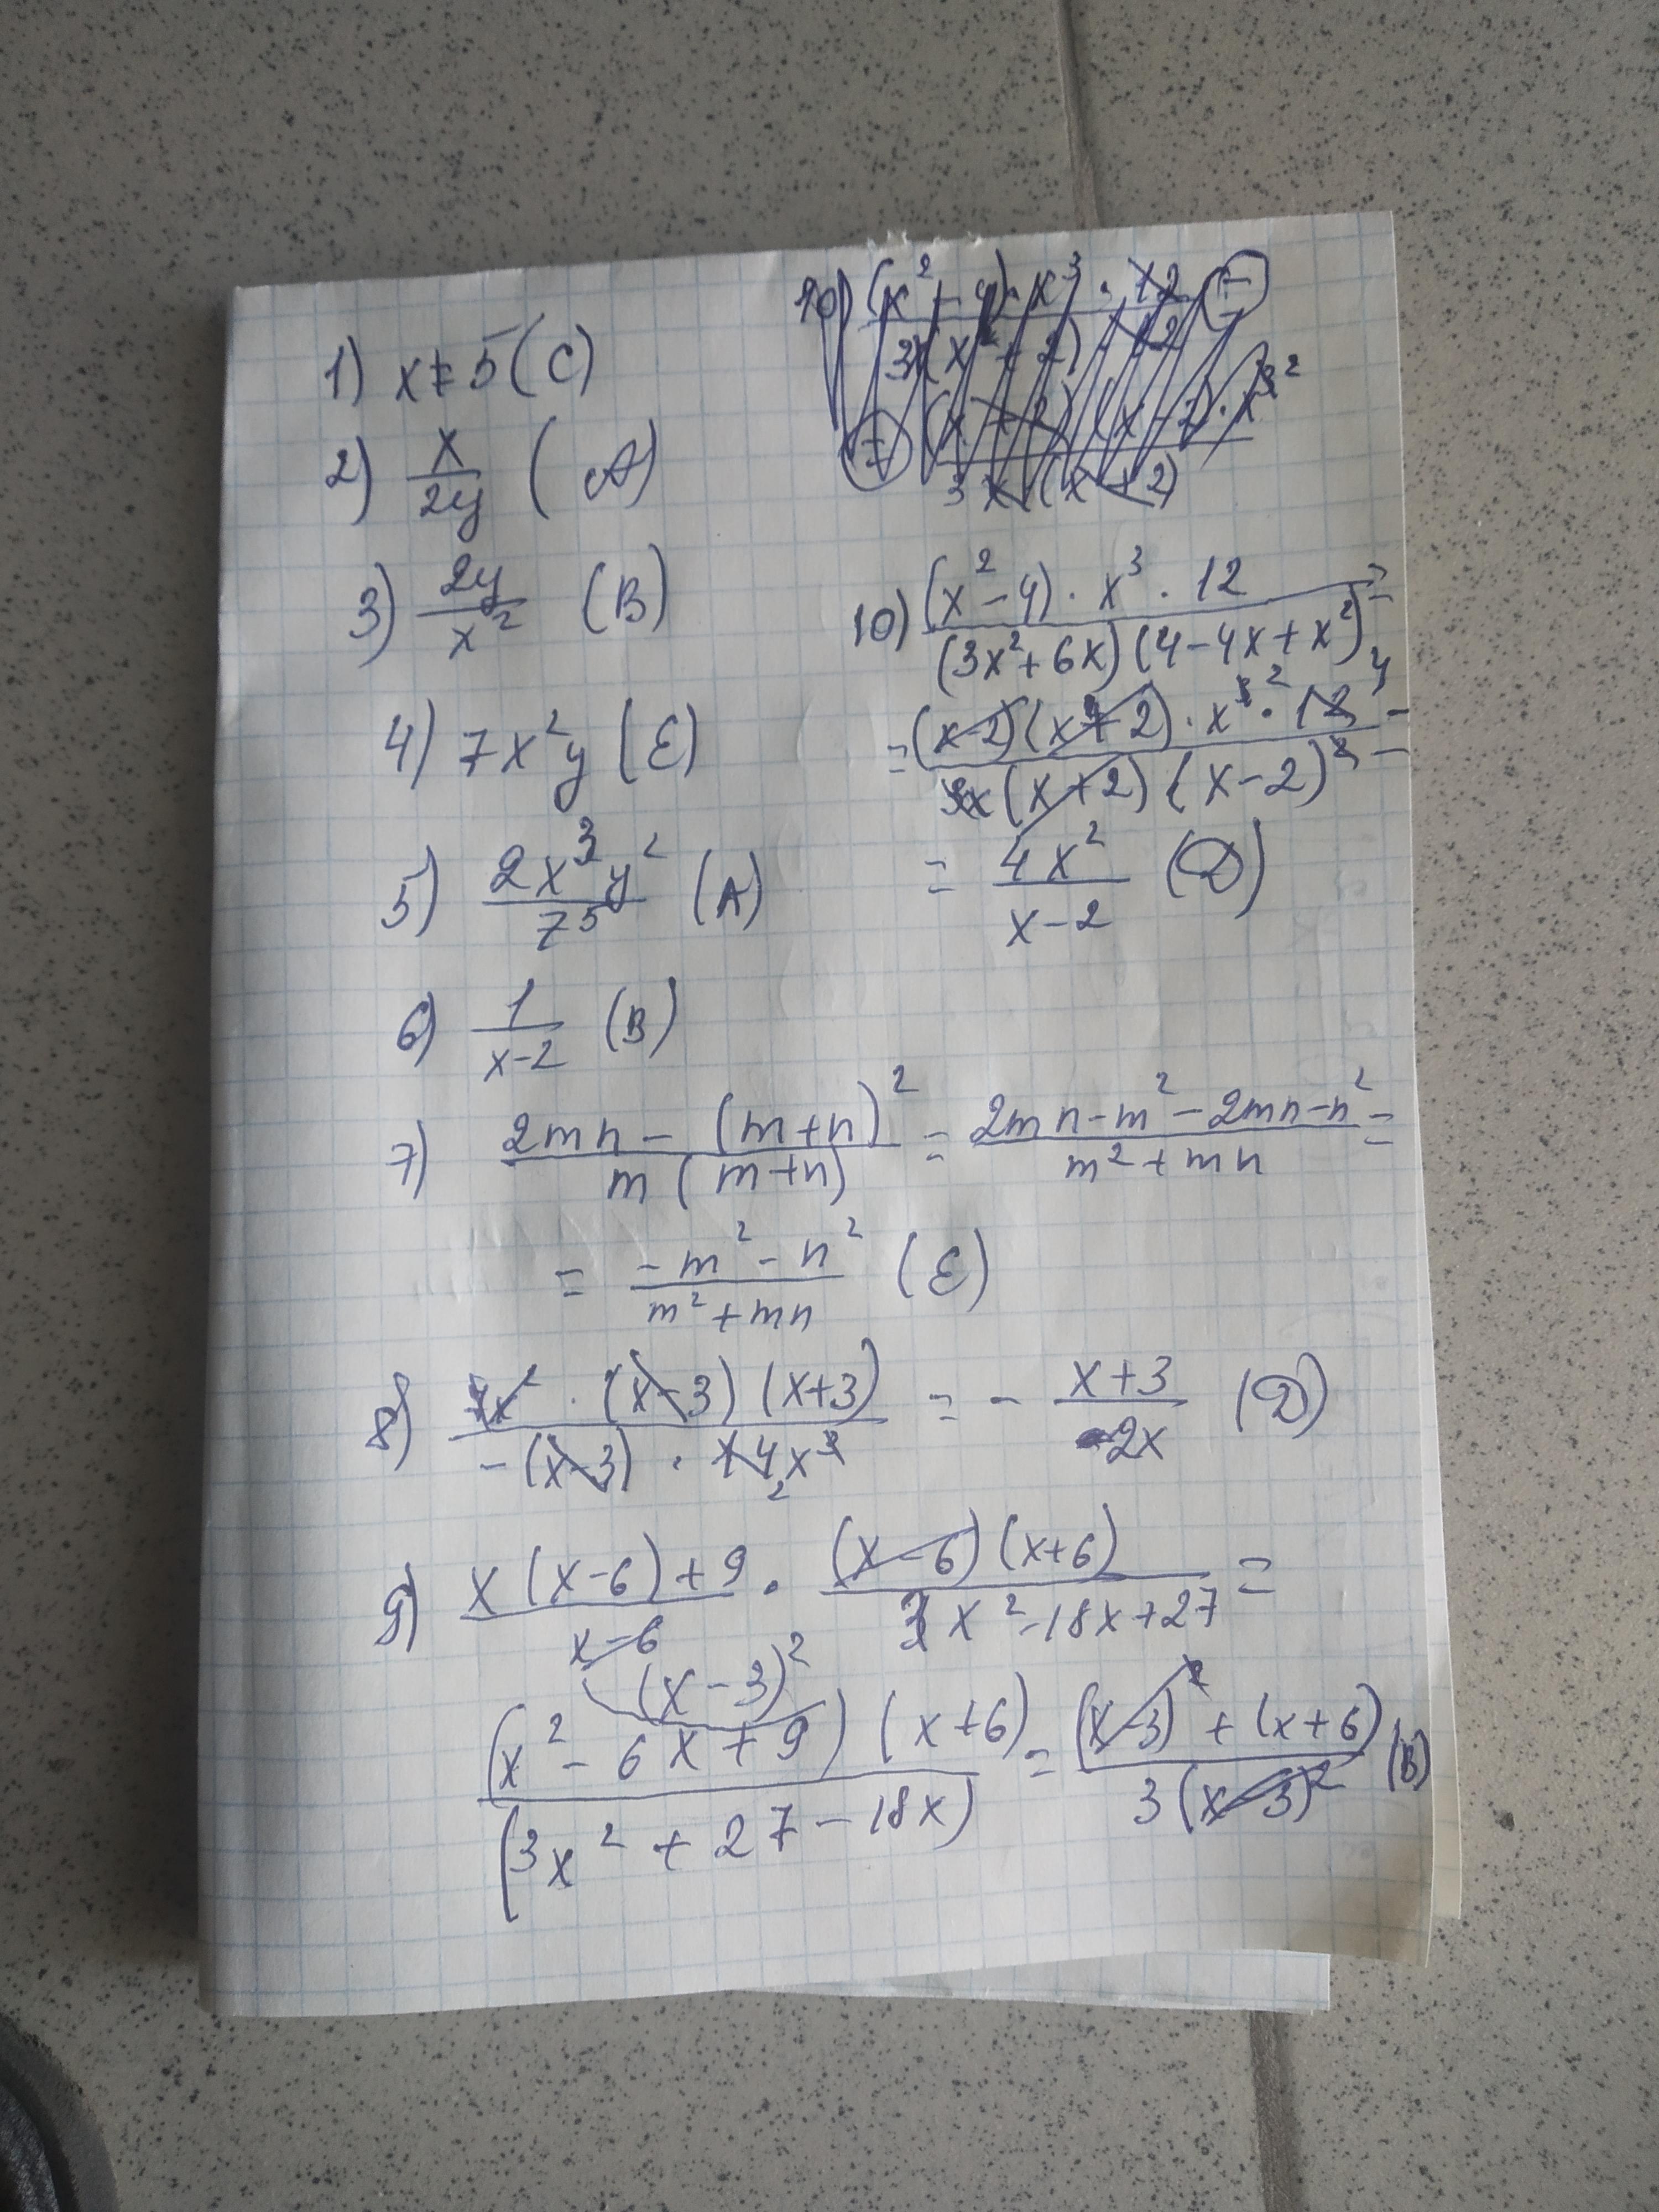 1) x ≠ 5 (C)
2) x/2y (A)
3) 2y/x² (B)
4) 7x²y (E)
5) 2x³y²/7⁵ (A)
6) 1/(x-2) (B)
7) (2mn - (m+n)²)/(m(m+n)) = (2mn - m² - 2mn - n²)/(m² + mn) =
= (-m² - n²)/(m² + mn) (E)
8) (7x² · (x-3)(x+3))/(-(x-3) · 14x³) = - (x+3)/(2x) (D)
9) (x(x-6)+9)/(x-6) · ((x-6)(x+6))/(3x² - 18x + 27) =
(x-3)²
((x² - 6x + 9)(x+6))/(3x² + 27 - 18x) = ((x-3)² + (x+6))/(3(x-3)²) (B)
10) ((x² - 4) · x³ · 12)/((3x² + 6x)(4 - 4x + x²)) =
= ((x-2)(x+2) · x³ · 12)/(3x(x+2)(x-2)²) =
= 4x²/(x-2) (D)